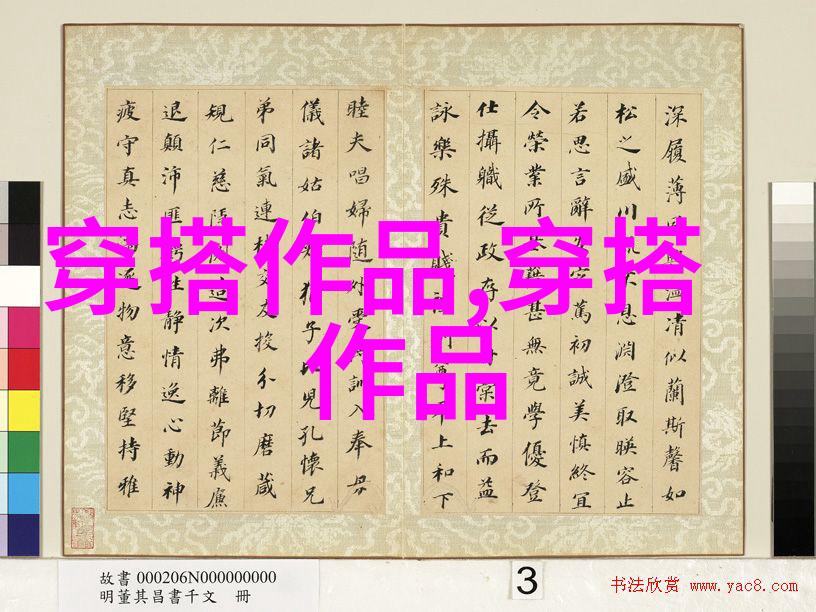 穿搭作品,穿搭
作品
深履薄清似蘭斯馨如
松之盛川息淵澄取暎容止
若思言辭篤初誠美慎終宜
令榮業所甚無竟學優登
仕攝職從政存以棠去而益
詠樂殊貴賤上和下
睦夫唱婦随外受訓入奉母
儀諸姑伯猶子兒孔懷兄
弟同氣連交友投分切磨箴
規仁慈造次弗離節義廉
退顛沛匪虧性靜情逸心動神
疲守真志逐物意移堅持雅
故書 000206N000000000
明董其昌書千文 冊
3
书法欣赏 www.yac8.com